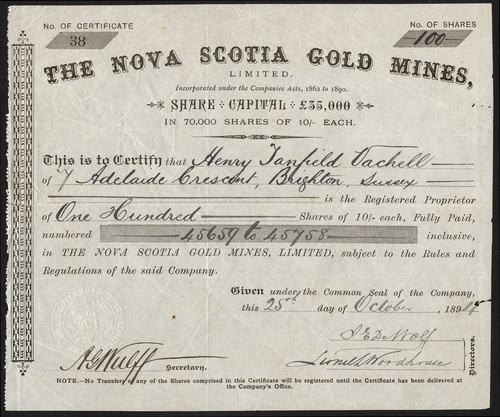 No. OF CERTIFICATE
38
No. OF SHARES
100
THE NOVA SCOTIA GOLD MINES,
LIMITED.
Incorporated under the Companies Acts, 1862 to 1890.
SHARE CAPITAL £35,000
IN 70,000 SHARES OF 10/- EACH.
This is to Certify that Henry Tanfield Vachell
of 7 Adelaide Crescent, Brighton, Sussex
is the Registered Proprietor
of One Hundred Shares of 10/- each, Fully Paid,
numbered 45659 to 45758 inclusive,
in THE NOVA SCOTIA GOLD MINES, LIMITED, subject to the Rules and
Regulations of the said Company.
Given under the Common Seal of the Company,
this 25th day of October, 189
A G Wulff
Secretary.
Lionel Woodhouse
Directors.
NOTE.—No Transfer of any of the Shares comprised in this Certificate will be registered until the Certificate has been delivered at
the Company's Office.